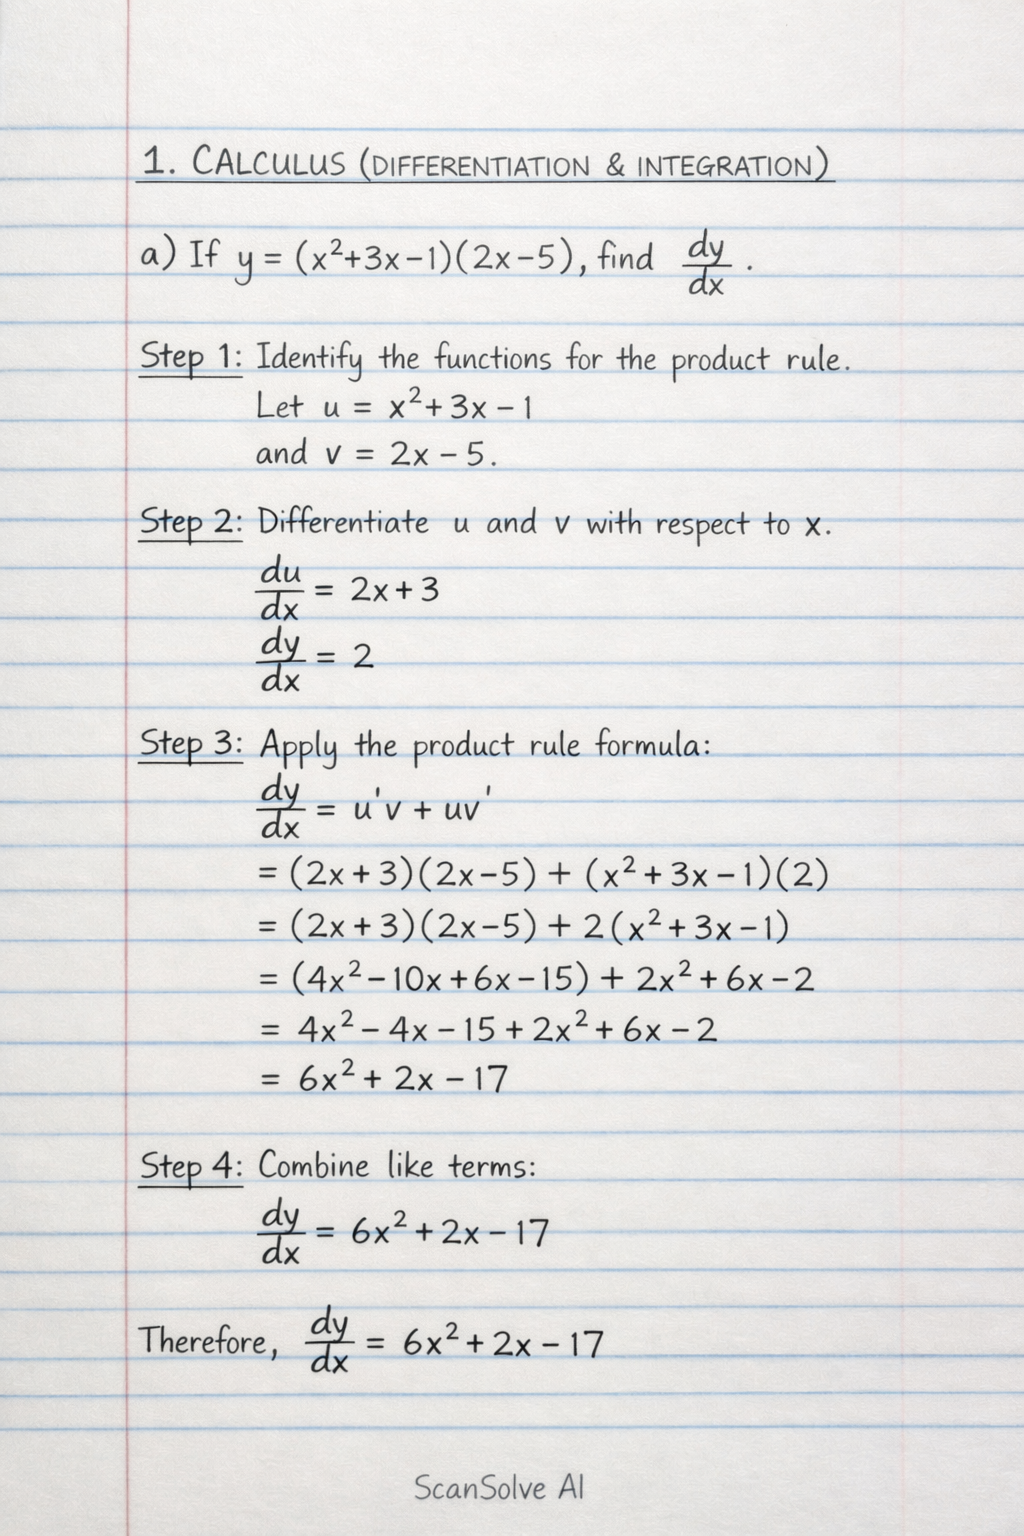 1. CALCULUS (DIFFERENTIATION & INTEGRATION)
a) If y = (x²+3x−1)(2x−5), find dy/dx .
Step 1: Identify the functions for the product rule.
Let u = x²+3x−1
and v = 2x−5.
Step 2: Differentiate u and v with respect to x.
du/dx = 2x+3
dy/dx = 2
Step 3: Apply the product rule formula:
dy/dx = u'v + uv'
= (2x+3)(2x−5) + (x²+3x−1)(2)
= (2x+3)(2x−5) + 2(x²+3x−1)
= (4x²−10x+6x−15) + 2x²+6x−2
= 4x²−4x−15+2x²+6x−2
= 6x²+2x−17
Step 4: Combine like terms:
dy/dx = 6x²+2x−17
Therefore, dy/dx = 6x²+2x−17
ScanSolve AI